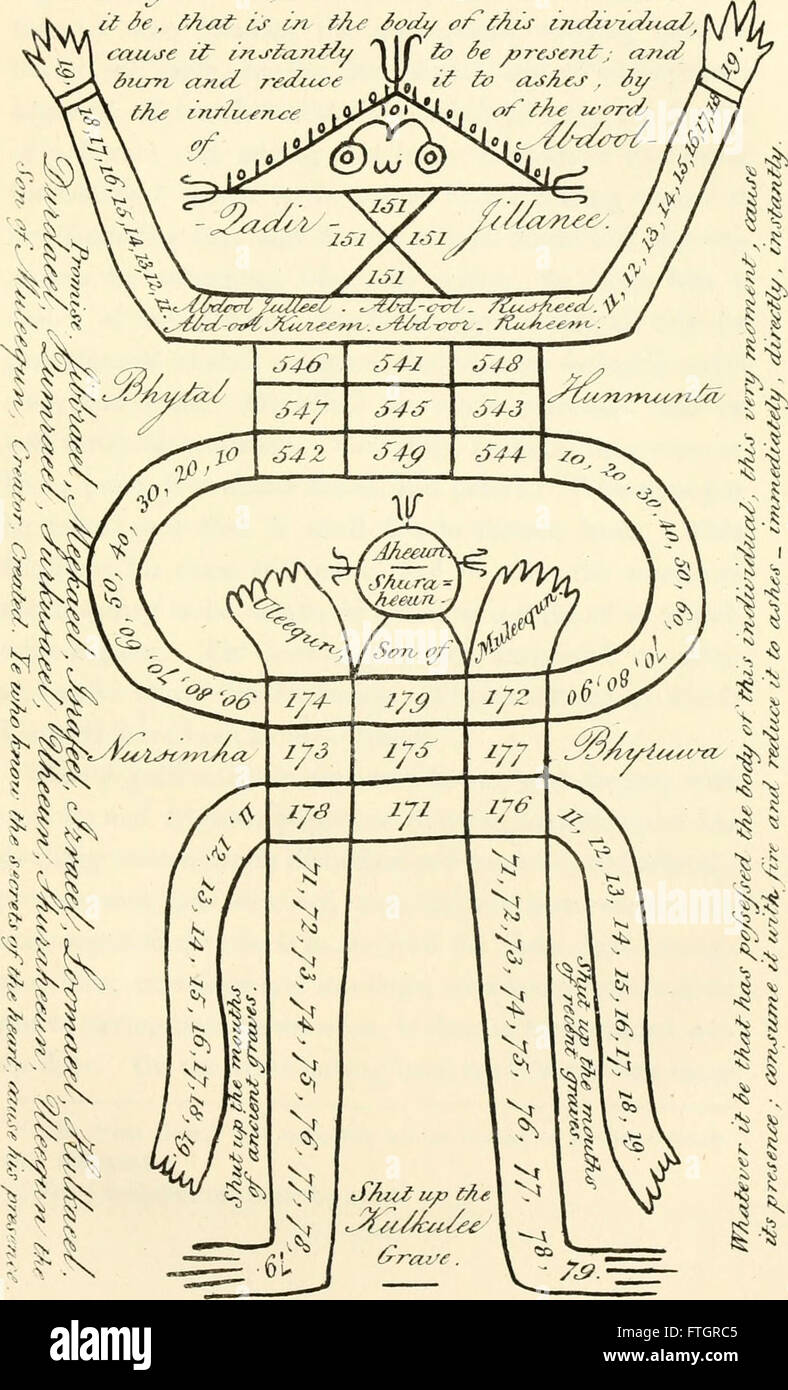 it be, that is in the body of this individual,
cause it instantly to be present; and
burn and reduce it to ashes, by
the influence of the word
of Abdool-
19. 19.
18, 17, 16, 15, 14, 13, 12, 11.
11, 12, 13, 14, 15, 16, 17, 18
151
-Qadir- 151 151 Jillanee.
151
Abdool Julleel. Abd-ool-Rusheed.
Abd-ool Kureem. Abd-oor-Ruheem.
546 541 548
Bhytal 547 545 543 Hunmunta
542 549 544
10, 20, 30, 40, 50, 60, 70, 80, 90
10, 20, 30, 40, 50, 60, 70, 80, 90
Aheeun.
Shura=
heeun-
Uleequn, Son of Muleequn
174 179 172
Nursimha 173 175 177 Bhyruwa
178 171 176
11, 12, 13, 14, 15, 16, 17, 18, 19
11, 12, 13, 14, 15, 16, 17, 18, 19
71, 72, 73, 74, 75, 76, 77, 78,
79
71, 72, 73, 74, 75, 76, 77, 78,
79.
Shut up the mouths
of ancient graves.
Shut up the mouths
of recent graves.
Shut up the
Kulkulee
Grave.
Promise. Jibbraeel, Meekaeel, Israfeel, Izraeel, Loomaeel, Kulkaeel.
Durdaeel, Dumraeel, Surkusaeel, Uheeun, Shuraheeun, Uleequn the
Son of Muleequn, Creator, Created. Ye who know the secrets of the heart, cause his presence
Whatever it be that has possessed the body of this individual, this very moment, cause
its presence; consume it with fire and reduce it to ashes - immediately, directly, instantly.
alamy
alamy
alamy
alamy
Image ID: FTGRC5
www.alamy.com